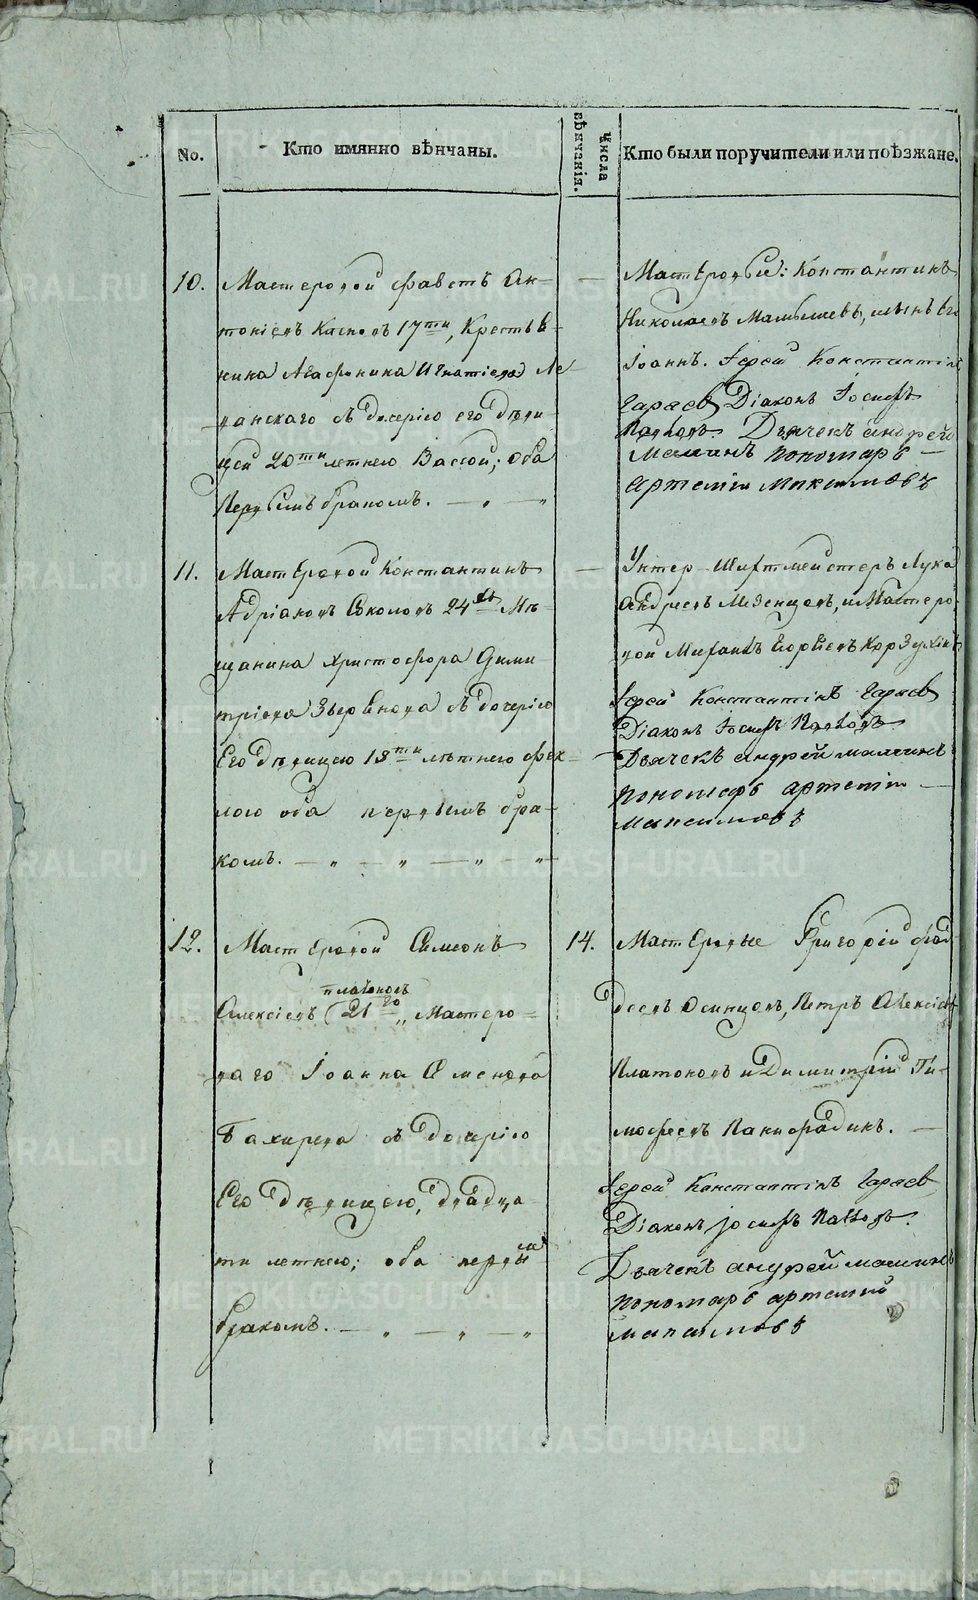 No.
Кто имянно вѣнчаны.
Числа вѣнчанія.
Кто были поручители или поѣзжане.
10.
Мастеровой Фавстъ Ан-
тоніевъ 17ти, Крестья-
нина Агафоника Игнатіева Ле-
съ дочерію его дѣви-
цей 20ти летнею Вассой; оба
первымъ бракомъ.
—
Мастеровые: Константинъ
Николаевъ
Іоаннъ. Іерей Константинъ
Гаряев Діаконъ Іосифъ
Дьячекъ андрей
Маминъ пономарь —
Артемий Максимовъ
11.
Мастеровой Константинъ
Адріановъ Соколовъ 24хъ Мѣ-
щанина Христофора Дими-
тріева съ дочерію
Его дѣвицею 18ти лѣтнею Фек-
лою оба первымъ бра-
комъ. — „ — „ — „ — „
—
Унтер-Шихтмейстеръ Лука
Андреевъ Мезенцовъ, и Мастеро-
вой
Іерей Константінъ Гаряев
Діаконъ Іосифъ
Дьячекъ андрей маминъ
пономарь артемiй —
максимовъ
12.
Мастеровой Симеонъ
Платоновъ
Алексіевъ 21го „ Мастеро-
ваго Іоанна Семенова
Бахирева съ дочерію
Его дѣвицею, двадца-
ти летнею; оба первымъ
бракомъ. — „ — „ — „
14.
Мастеровые Григорій Фад-
деевъ Осинцовъ, Петръ Алексіевъ
Платоновъ и Димитрій Ти-
мофеевъ Панифадинъ. —
Іерей Константінъ Гаряев
Діаконъ Іосифъ
Дьячекъ андрей маминъ
пономарь артемий
максимовъ
METRIKI.GASO-URAL.RU